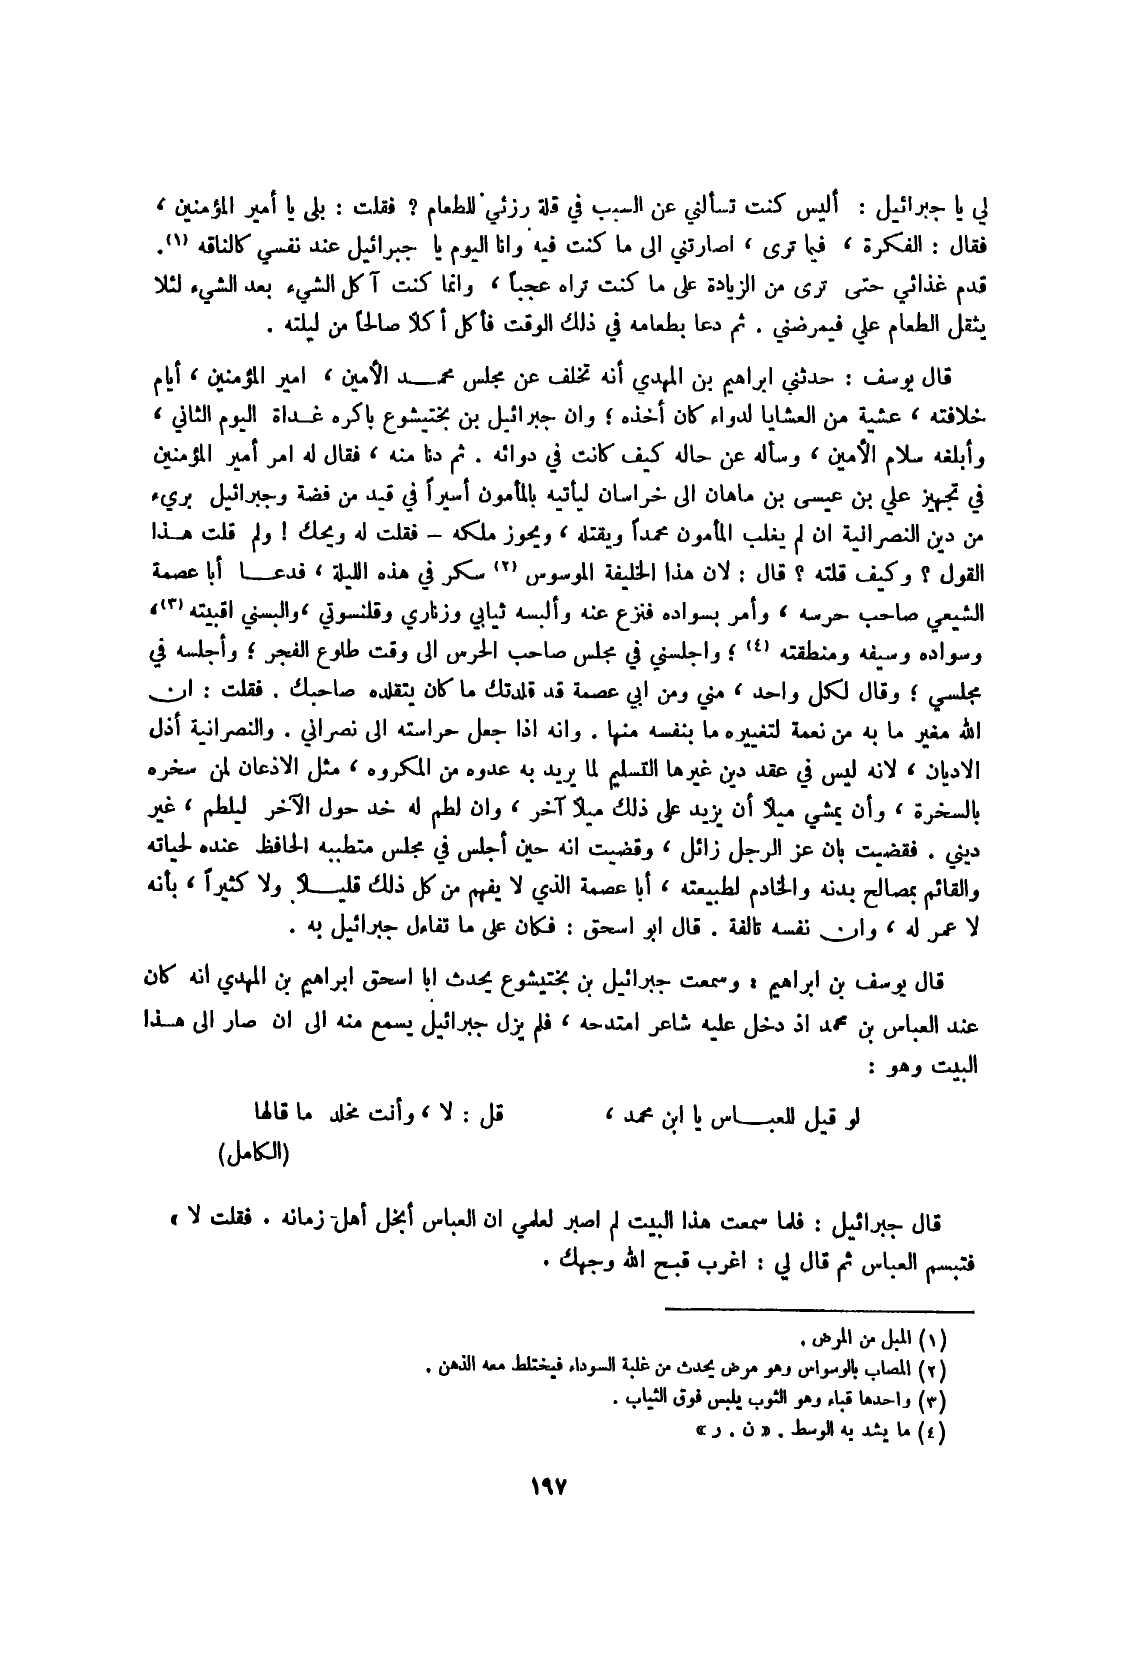 لي يا جبرائيل : أليس كنت تسألني عن السبب في قلة رزئي للطعام ? فقلت : بلى يا أمير المؤمنين ،
فقال : الفكرة ، فيما ترى ، اصارتني الى ما كنت فيه وانا اليوم يا جبرائيل عند نفسي كالناقه (١).
قدم غذائي حتى ترى من الزيادة على ما كنت تراه عجباً ، وانما كنت آكل الشيء بعد الشيء لئلا
يثقل الطعام علي فيمرضني . ثم دعا بطعامه في ذلك الوقت فأكل أكلا صالحاً من ليلته .
قال يوسف : حدثني ابراهيم بن المهدي أنه تخلف عن مجلس محمد الأمين ، امير المؤمنين ، أيام
خلافته ، عشية من العشايا لدواء كان أخذه ؛ وان جبرائيل بن بختيشوع باكره غداة اليوم الثاني ،
وأبلغه سلام الأمين ، وسأله عن حاله كيف كانت في دوائه . ثم دنا منه ، فقال له امر أمير المؤمنين
في تجهيز علي بن عيسى بن ماهان الى خراسان ليأتيه بالمأمون أسيراً في قيد من فضة وجبرائيل بريء
من دين النصرانية ان لم يغلب المأمون محمداً ويقتله ، ويحوز ملكه – فقلت له ويحك ! ولم قلت هذا
القول ؟ وكيف قلته ؟ قال : لان هذا الخليفة الموسوس (٢) سكر في هذه الليلة ، فدعا أبا عصمة
الشيعي صاحب حرسه ، وأمر بسواده فنزع عنه وألبسه ثيابي وزناري وقلنسوتي ،والبسني اقبيته (٣)،
وسواده وسيفه ومنطقته (٤) ؛ واجلسني في مجلس صاحب الحرس الى وقت طلوع الفجر ؛ وأجلسه في
مجلسي ؛ وقال لكل واحد ، مني ومن ابي عصمة قد قلدتك ما كان يتقلده صاحبك . فقلت : ان
الله مغير ما به من نعمة لتغييره ما بنفسه منها . وانه اذا جعل حراسته الى نصراني . والنصرانية أذل
الاديان ، لانه ليس في عقد دين غيرها التسليم لما يريد به عدوه من المكروه ، مثل الاذعان لمن سخره
بالسخرة ، وأن يمشي ميلا أن يزيد على ذلك ميلا آخر ، وان لطم له خد حول الآخر ليلطم ، غير
ديني . فقضيت بان عز الرجل زائل ، وقضيت انه حين أجلس في مجلس متطببه الحافظ عنده لحياته
والقائم بمصالح بدنه والخادم لطبيعته ، أبا عصمة الذي لا يفهم من كل ذلك قليلا ولا كثيراً ، بأنه
لا عمر له ، وان نفسه تالفة . قال ابو اسحق : فكان على ما تفاءل جبرائيل به .
قال يوسف بن ابراهيم : وسمعت جبرائيل بن بختيشوع يحدث ابا اسحق ابراهيم بن المهدي انه كان
عند العباس بن محمد اذ دخل عليه شاعر امتدحه ، فلم يزل جبرائيل يسمع منه الى ان صار الى هذا
البيت وهو :
لو قيل للعباس يا ابن محمد ، قل : لا ، وأنت مخلد ما قالها
(الكامل)
قال جبرائيل : فلما سمعت هذا البيت لم اصبر لعلمي ان العباس أبخل أهل زمانه . فقلت لا ،
فتبسم العباس ثم قال لي : اغرب قبح الله وجهك .
(١) المبل من المرض .
(٢) المصاب بالوسواس وهو مرض يحدث من غلبة السوداء فيختلط معه الذهن .
(٣) واحدها قباء وهو الثوب يلبس فوق الثياب .
(٤) ما يشد به الوسط . « ن . ر »
١٩٧